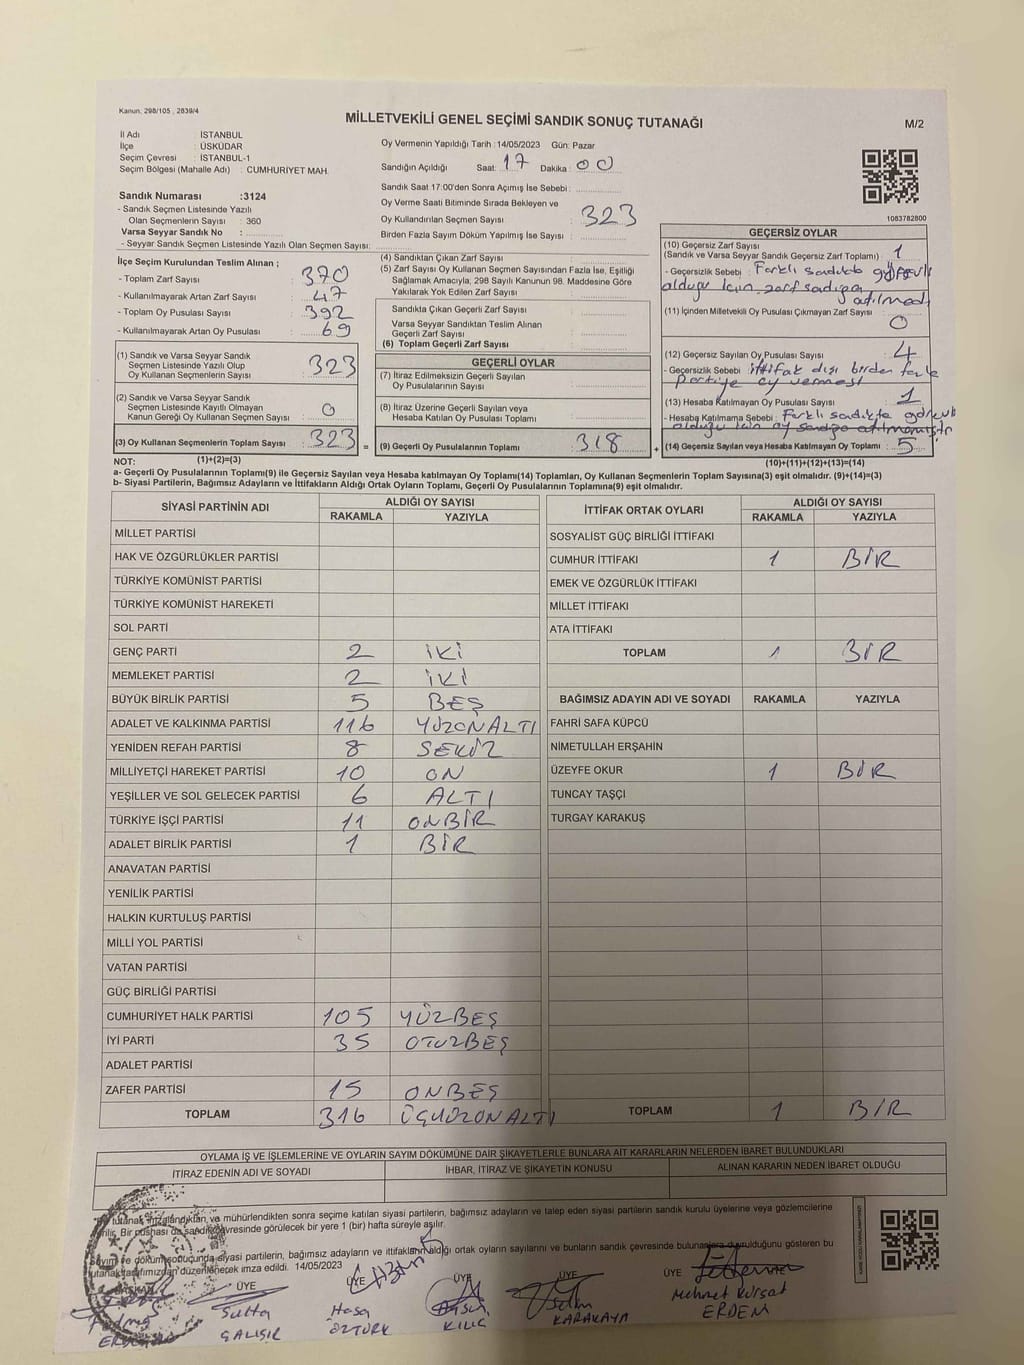 Kanun, 298/105 , 2839/4
MİLLETVEKİLİ GENEL SEÇİMİ SANDIK SONUÇ TUTANAĞI
M/2
İl Adı : İSTANBUL
İlçe : ÜSKÜDAR
Seçim Çevresi : İSTANBUL-1
Seçim Bölgesi (Mahalle Adı) : CUMHURİYET MAH.
Oy Vermenin Yapıldığı Tarih :14/05/2023 Gün: Pazar
Sandığın Açıldığı Saat: 17 Dakika : 00
Sandık Saat 17:00'den Sonra Açılmış İse Sebebi :
Sandık Numarası :3124
- Sandık Seçmen Listesinde Yazılı
Olan Seçmenlerin Sayısı : 360
Varsa Seyyar Sandık No :
- Seyyar Sandık Seçmen Listesinde Yazılı Olan Seçmen Sayısı:
Oy Verme Saati Bitiminde Sırada Bekleyen ve
Oy Kullandırılan Seçmen Sayısı : 323
Birden Fazla Sayım Döküm Yapılmış İse Sayısı :
1083782800
İlçe Seçim Kurulundan Teslim Alınan ;
- Toplam Zarf Sayısı : 370
- Kullanılmayarak Artan Zarf Sayısı : 47
- Toplam Oy Pusulası Sayısı : 392
- Kullanılmayarak Artan Oy Pusulası : 69
(1) Sandık ve Varsa Seyyar Sandık
Seçmen Listesinde Yazılı Olup
Oy Kullanan Seçmenlerin Sayısı : 323
(2) Sandık ve Varsa Seyyar Sandık
Seçmen Listesinde Kayıtlı Olmayan
Kanun Gereği Oy Kullanan Seçmen Sayısı : 0
(3) Oy Kullanan Seçmenlerin Toplam Sayısı : 323 =
(4) Sandıktan Çıkan Zarf Sayısı :
(5) Zarf Sayısı Oy Kullanan Seçmen Sayısından Fazla İse, Eşitliği
Sağlamak Amacıyla; 298 Sayılı Kanunun 98. Maddesine Göre
Yakılarak Yok Edilen Zarf Sayısı :
Sandıkla Çıkan Geçerli Zarf Sayısı :
Varsa Seyyar Sandıktan Teslim Alınan
Geçerli Zarf Sayısı :
(6) Toplam Geçerli Zarf Sayısı :
GEÇERLİ OYLAR
(7) İtiraz Edilmeksizin Geçerli Sayılan
Oy Pusulalarının Sayısı :
(8) İtiraz Üzerine Geçerli Sayılan veya
Hesaba Katılan Oy Pusulası Toplamı :
(9) Geçerli Oy Pusulalarının Toplamı : 318 +
GEÇERSİZ OYLAR
(10) Geçersiz Zarf Sayısı
(Sandık ve Varsa Seyyar Sandık Geçersiz Zarf Toplamı) : 1
- Geçersizlik Sebebi : Farklı sandıkta görevli
olduğu için zarf sandığa
atılmadı
(11) İçinden Milletvekili Oy Pusulası Çıkmayan Zarf Sayısı
: 0
(12) Geçersiz Sayılan Oy Pusulası Sayısı : 4
- Geçersizlik Sebebi : ittifak dışı birden fazla
partiye oy vermesi
(13) Hesaba Katılmayan Oy Pusulası Sayısı : 1
- Hesaba Katılmama Sebebi : Farklı sandıkta görevli
olduğu için oy sandığa atılmamıştır
(14) Geçersiz Sayılan veya Hesaba Katılmayan Oy Toplamı : 5
NOT: (1)+(2)=(3)
(10)+(11)+(12)+(13)=(14)
a- Geçerli Oy Pusulalarının Toplamı(9) ile Geçersiz Sayılan veya Hesaba katılmayan Oy Toplamı(14) Toplamları, Oy Kullanan Seçmenlerin Toplam Sayısına(3) eşit olmalıdır. (9)+(14)=(3)
b- Siyasi Partilerin, Bağımsız Adayların ve İttifakların Aldığı Ortak Oyların Toplamı, Geçerli Oy Pusulalarının Toplamına(9) eşit olmalıdır.
SİYASİ PARTİNİN ADI ALDIĞI OY SAYISI
RAKAMLA YAZIYLA
MİLLET PARTİSİ
HAK VE ÖZGÜRLÜKLER PARTİSİ
TÜRKİYE KOMÜNİST PARTİSİ
TÜRKİYE KOMÜNİST HAREKETİ
SOL PARTİ
GENÇ PARTİ 2 İKİ
MEMLEKET PARTİSİ 2 İKİ
BÜYÜK BİRLİK PARTİSİ 5 BEŞ
ADALET VE KALKINMA PARTİSİ 116 YÜZONALTI
YENİDEN REFAH PARTİSİ 8 SEKİZ
MİLLİYETÇİ HAREKET PARTİSİ 10 ON
YEŞİLLER VE SOL GELECEK PARTİSİ 6 ALTI
TÜRKİYE İŞÇİ PARTİSİ 11 ONBİR
ADALET BİRLİK PARTİSİ 1 BİR
ANAVATAN PARTİSİ
YENİLİK PARTİSİ
HALKIN KURTULUŞ PARTİSİ
MİLLİ YOL PARTİSİ
VATAN PARTİSİ
GÜÇ BİRLİĞİ PARTİSİ
CUMHURİYET HALK PARTİSİ 105 YÜZBEŞ
İYİ PARTİ 35 OTUZBEŞ
ADALET PARTİSİ
ZAFER PARTİSİ 15 ONBEŞ
TOPLAM 316 ÜÇYÜZONALTI
İTTİFAK ORTAK OYLARI ALDIĞI OY SAYISI
RAKAMLA YAZIYLA
SOSYALİST GÜÇ BİRLİĞİ İTTİFAKI
CUMHUR İTTİFAKI 1 BİR
EMEK VE ÖZGÜRLÜK İTTİFAKI
MİLLET İTTİFAKI
ATA İTTİFAKI
TOPLAM 1 BİR
BAĞIMSIZ ADAYIN ADI VE SOYADI RAKAMLA YAZIYLA
FAHRİ SAFA KÜPCÜ
NİMETULLAH ERŞAHİN
ÜZEYFE OKUR 1 BİR
TUNCAY TAŞÇI
TURGAY KARAKUŞ
TOPLAM 1 BİR
OYLAMA İŞ VE İŞLEMLERİNE VE OYLARIN SAYIM DÖKÜMÜNE DAİR ŞİKAYETLERLE BUNLARA AİT KARARLARIN NELERDEN İBARET BULUNDUKLARI
İTİRAZ EDENİN ADI VE SOYADI İHBAR, İTİRAZ VE ŞİKAYETİN KONUSU ALINAN KARARIN NEDEN İBARET OLDUĞU
tutanak imzalandıktan ve mühürlendikten sonra seçime katılan siyasi partilerin, bağımsız adayların ve talep eden siyasi partilerin sandık kurulu üyelerine veya gözlemcilerine
Bir sandık çevresinde görülecek bir yere 1 (bir) hafta süreyle asılır.
Sayım ve döküm sonucunda siyasi partilerin, bağımsız adayların ve ittifakların aldığı ortak oyların sayılarını ve bunların sandık çevresinde bulunanlara duyurulduğunu gösteren bu
tutanak tarafımızdan düzenlenerek imza edildi. 14/05/2023
BAŞKAN ÜYE ÜYE ÜYE ÜYE ÜYE
ÇALIŞIR
ÖZTÜRK
KILIÇ
Selim
KARAKAYA
Mehmet Kürşat
ERDEM